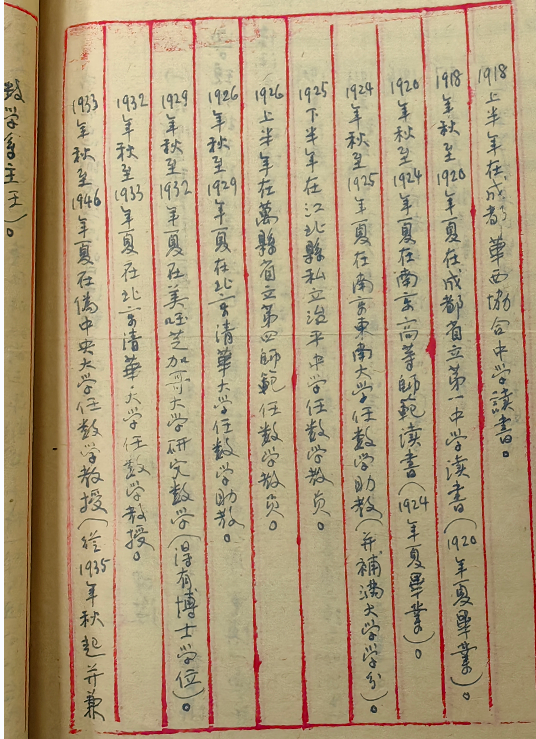 1918上半年在成都華西協合中学讀書。
1918年秋至1920年夏在成都省立第一中学读書（1920年夏畢業）。
1920年秋至1924年夏在南京高等師範读書（1924年夏畢業）。
1924年秋至1925年夏在南京東南大学任数学助教（并補满大学学分）。
1925下半年在江北縣私立治平中学任数学教员。
1926上半年在萬縣省立第四師範任数学教员。
1926年秋至1929年夏在北京清華大学任数学助教。
1929年秋至1932年夏在美国芝加哥大学研究数学（得有博士学位）。
1932年秋至1933年夏在北京清華大学任数学教授。
1933年秋至1946年夏在僞中央大学任数学教授（從1935年秋起并兼
数学系主任）。